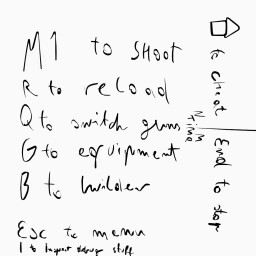 M1 to shoot
R to reload
Q to switch guns
G to equipment
B to builder
Esc to menu
to cheat
End to stop